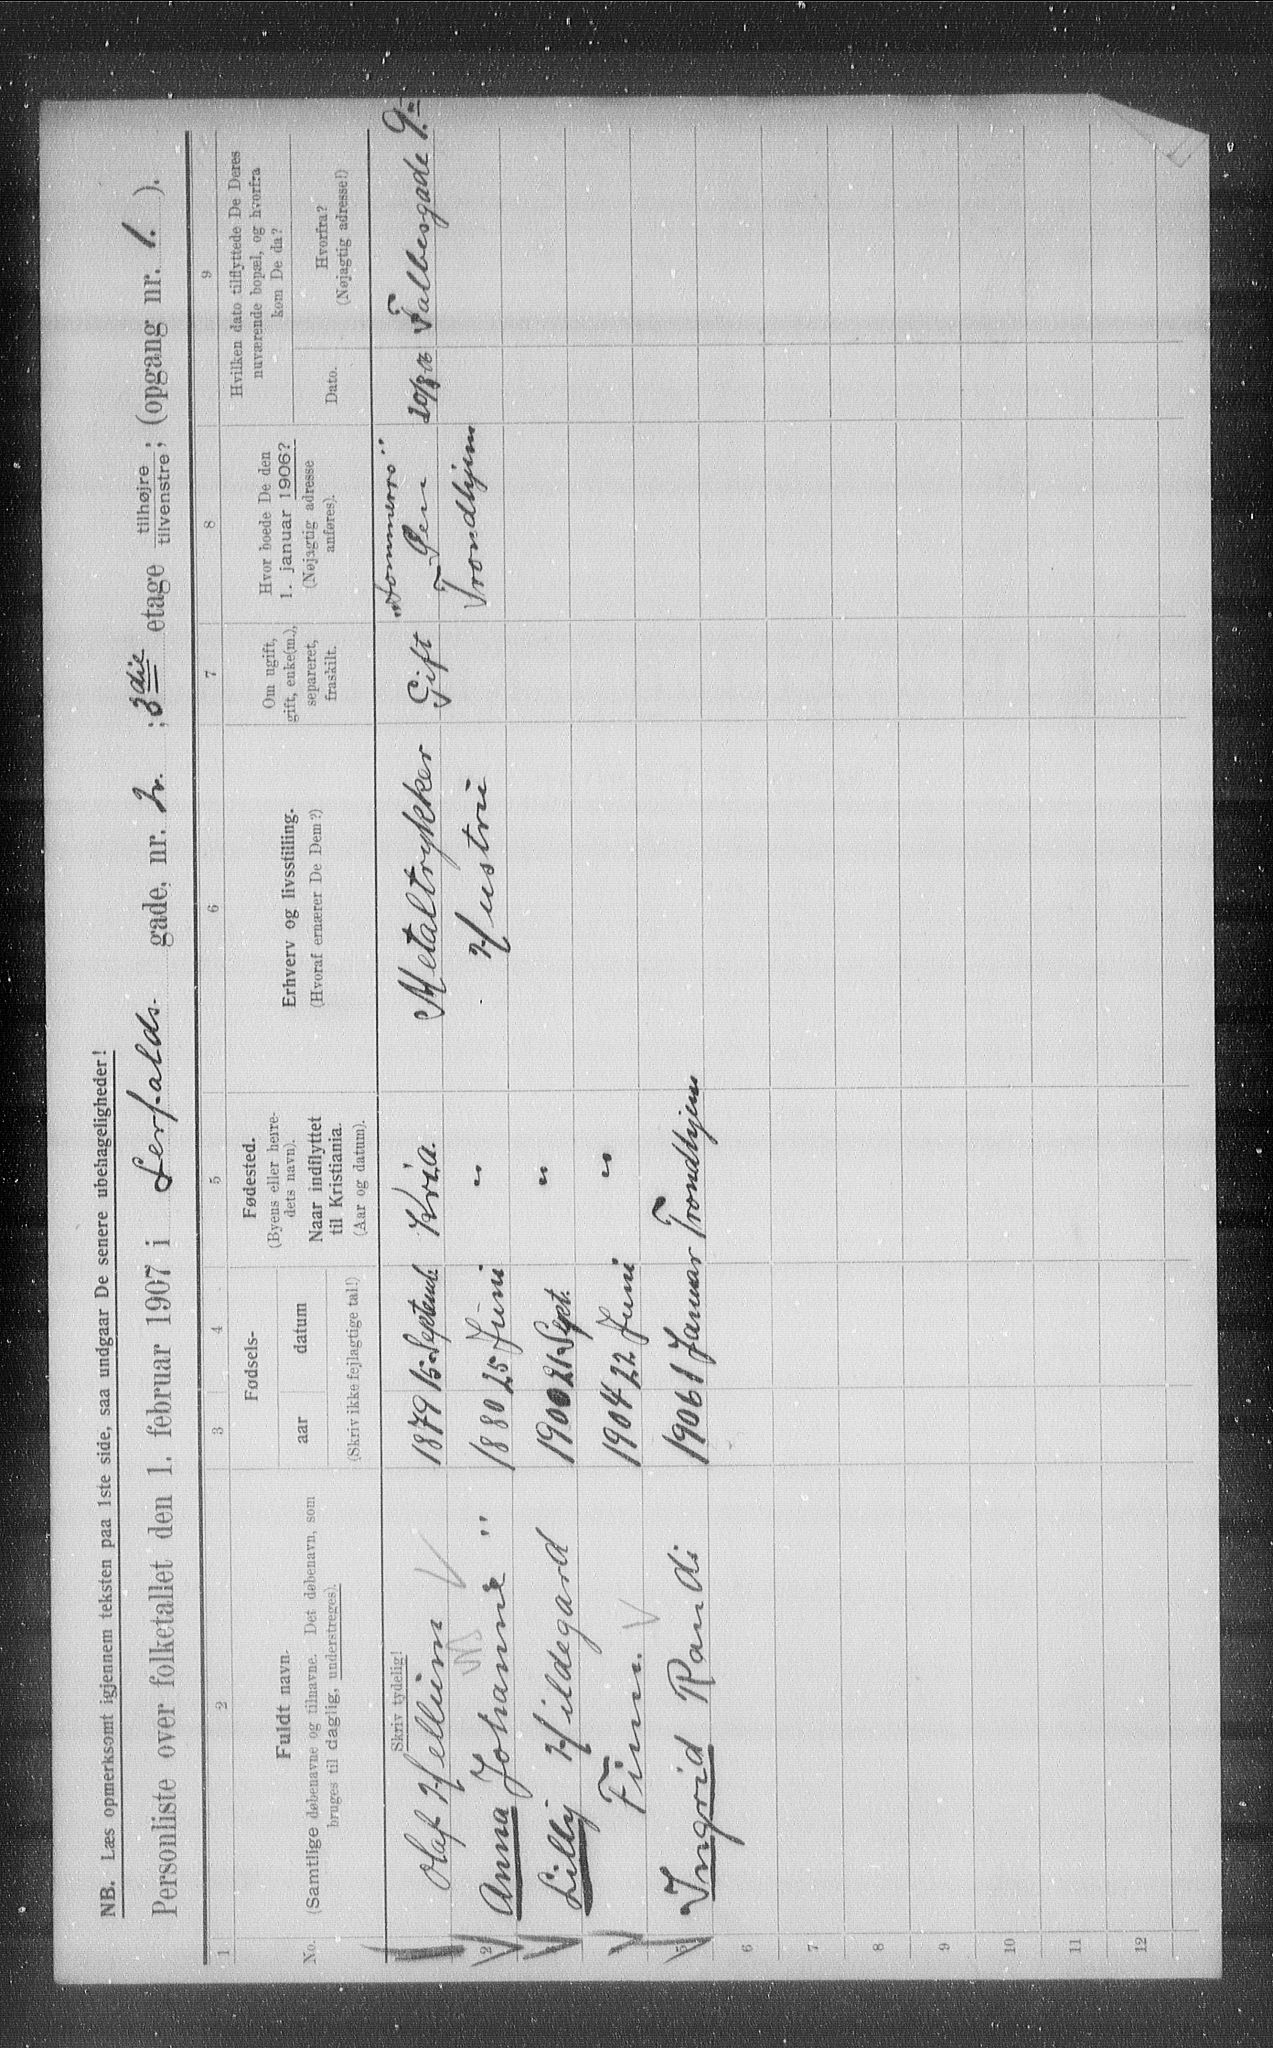 NB. Læs opmerksomt igjennem teksten paa 1ste side, saa undgaar De senere ubehageligheder!
Personliste over folketallet den 1. februar 1907 i gade, nr. ; 3die etage tilhøjre tilvenstre; (opgang nr. 1. ).
1 2 3 4 5 6 7 8 9
No.
Fuldt navn.
(Samtlige døbenavne og tilnavne. Det døbenavn, som
bruges til daglig, understreges).
Fødsels-
aar datum
(Skriv ikke fejlagtige tal!)
Fødested.
(Byens eller herre-
dets navn).
Naar indflyttet
til Kristiania.
(Aar og datum).
Erhverv og livsstilling.
(Hvoraf ernærer De Dem?)
Om ugift,
gift, enke(m.),
separeret,
fraskilt.
Hvor boede De den
1. januar 1906?
(Nøjagtig adresse
anføres).
Hvilken dato tilflyttede De Deres
nuværende bopæl, og hvorfra
kom De da?
Dato.
Hvorfra?
(Nøjagtig adresse!)
Skriv tydelig!
Olaf Hellum 1879 15 Septemb. Kria. Metaltrykker Gift
2 Anna Johanne " 1880 25 Juni " Hustru Trondhjem
Lilly Hildegard 1900 21 Sept. "
Finn. 1904 22 Juni "
5 Ingrid Randi 1906 1 Januar Trondhjem
6
7
8
9
10
11
12